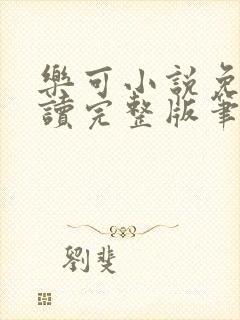 樂可小說免
讀完整版筆
劉斐